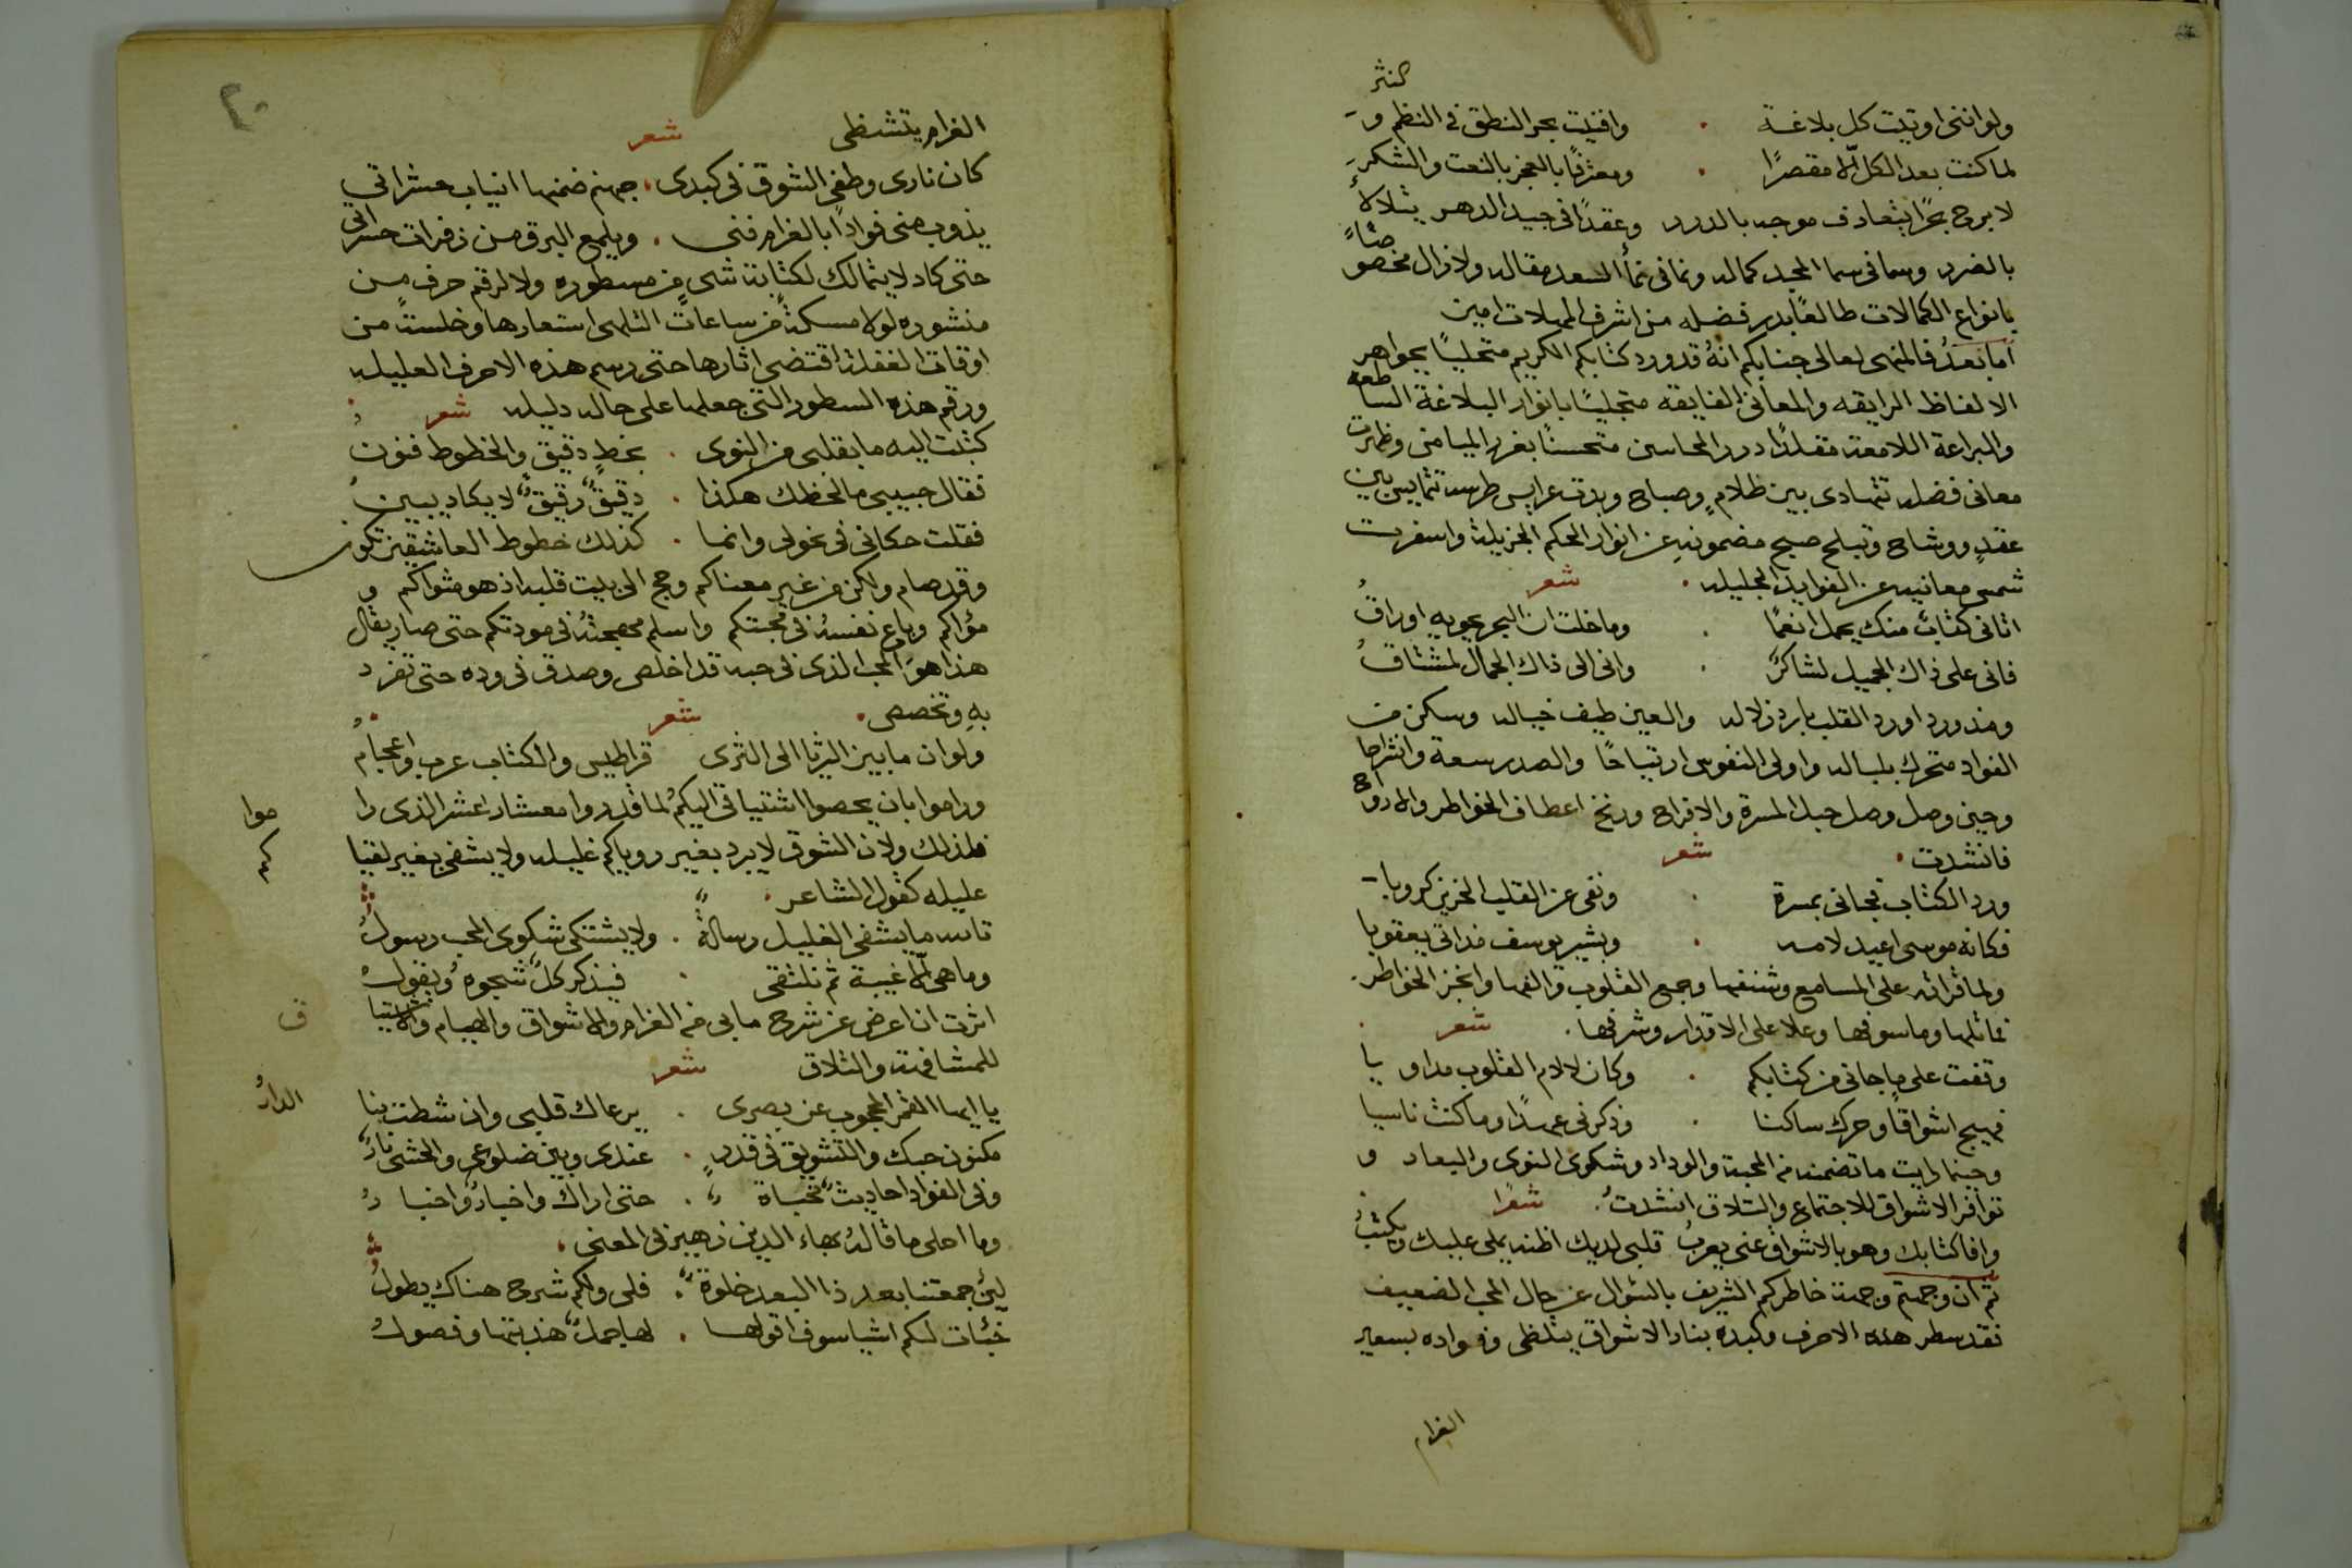 ولو انني اوتيت كل بلاغة . وافنيت بحر النطق في النظم و النثر
لما كنت بعد الكل الا مقصرًا . ومعترفًا بالعجز بالنعت والشكر
لا برح بحرًا يتقاذف موجه بالدرر وعقدًا في جيد الدهر يتلالأ
بالغرر وسما في سما المجد كماله ونما في نمأ السعد مقاله ولا زال مخصوصًا
بانواع الكمالات طالعًا بدر فضله من اشرف امين
اما بعد فالمنهى لعالى جنابكم انه قد ورد كتابكم الكريم متحليًا بجواهر
الالفاظ الرايقه والمعاني الفايقه متجليًا بانوار البلاغة الساطعه
والبراعة اللامعه مقلدًا درر المحاسن متحسنًا بغرر الميامن وظهرت
معاني فضله تتهادى بين ظلامٍ وصباح وبدت عرايس طرسه تتمايس بين
عقدٍ ووشاح وتبلج صبح مضمونه عن انوار الحكم الجزيلة واسفرت
شمس معانيه عن الفوايد الجليله . شعر
اتاني كتاب منك يحمل انعمًا . وما خلت ان البحر يحويه اوراقُ
فاني على ذاك الجميل لشاكرٌ . واني الى ذاك الجمال لمشتاقُ
ومذ ورد اورد القلب بارد زلاله والعين طيف خياله وسكن من
الفواد متحرك بلباله واولى النفوس ارتياحًا والصدر سعة وانشراحا
وحين وصل وصل حبل المسرة والافراح ورنح اعطاف الخواطر والارواح
فانشدت . شعر
ورد الكتاب فجاني بمسرة . ونفى عن القلب الحزين كروبا
فكانه موسى اعيد لامه . وبشير يوسف مذ اتى يعقوبا
ولما قراته على المسامع وشنفها وجمع القلوب والفها وانجز الخواطر
فاتلها وما سوفها وعلا على الاقدار وشرفها . شعر
وقفت على ما جاني من كتابكم . وكان لالام القلوب مداويا
فهيج اشواقًا وحرك ساكنا . وذكرني عهدًا وما كنت ناسيا
وحينما رايت ما تضمنه من المحبة والوداد وشكوى النوى والبعاد و
توافر الاشواق للاجتماع والتلاق انشدتُ . شعرًا
وافا كتابك وهو بالاشواق عني يعربُ قلبي لديك اظنه يملي عليك ويكتبُ
ثم ان وجهتم وجهة خاطركم الشريف بالسؤال عن حال المحب الضعيف
فقد سطر هذه الاحرف وكبده بنار الاشواق يتلظى وفواده بسعير
الغرام
٢٠
الغرام يتشظى شعر
كان نارى وطفى الشوق في كبدى . جهنم ضمنها انياب حشراتي
يذوب مني فوادًا بالغرام فنى . ويلمع البرق من زفرات حسراتي
حتى كاد لا يتمالك لكتابة شىءٍ من مسطوره ولا لرقم حرفٍ من
منشوره لولا مسكةً من ساعات التلهى استعارها وخلسة من
اوقات الغفلة اقتضى اثارها حتى رسم هذه الاحرف العليله
ورقم هذه السطور التي جعلها على حاله دليله شعر
كتبت اليه ما بقلبي من النوى . بخطٍ دقيق والخطوط فنون
فقال حبيبي ما لخطك هكذا . دقيقٌ رقيقٌ لا يكاد يبين
فقلت حكاني في نحولي وانما . كذلك خطوط العاشقين تكون
وقد صام ولكن من غير معناكم وحج الى بيت قلبه اذ هو مثواكم و
مؤاكم وباع نفسه في محبتكم واسلم مهجته في مودتكم حتى صار يقال
هذا هو المحب الذى في حبه قد اخلص وصدق في وده حتى تفرد
به وتخصص . شعر
ولو ان ما بين الثريا الى الثرى قراطيس والكتاب عرب واعجام
وراموا بان يحصوا اشتياقي اليكم لما قدروا معشار عشر الذى را
موا
فلذلك ولان الشوق لا يبرد بغير روياكم غليله ولا يشفى بغير لقياكم
عليله كقول الشاعر .
تالله ما يشفى الغليل رسالة . ولا يشتكى شكوى المحب رسولُ
وما هي الا غيبة ثم نلتقى . فيذكر كلٌ شجوه ويقولُ
اثرت ان اعرض عن شرح ما بي من الغرام والاشواق والهيام والاشتيا
ق
للمشافهة والتلاق شعر
يا ايها القمر المحجوب عن بصرى . يرعاك قلبي وان شطت بنا
الدارُ
مكنون حبك والتشويق في قدرٍ . عندى وبين ضلوعي والحشى نارُ
وفي الفواد احاديث مخباة . حتى اراك واخبارٌ واخبارُ
وما احلى ما قاله بهاء الدين زهير في المعنى .
لئن جمعتنا بعد ذا البعد خلوة . فلي ولكم شرح هناك يطولُ
خبئات لكم اشيا سوف اقولها . لها جملٌ هذبتها وفصولُ